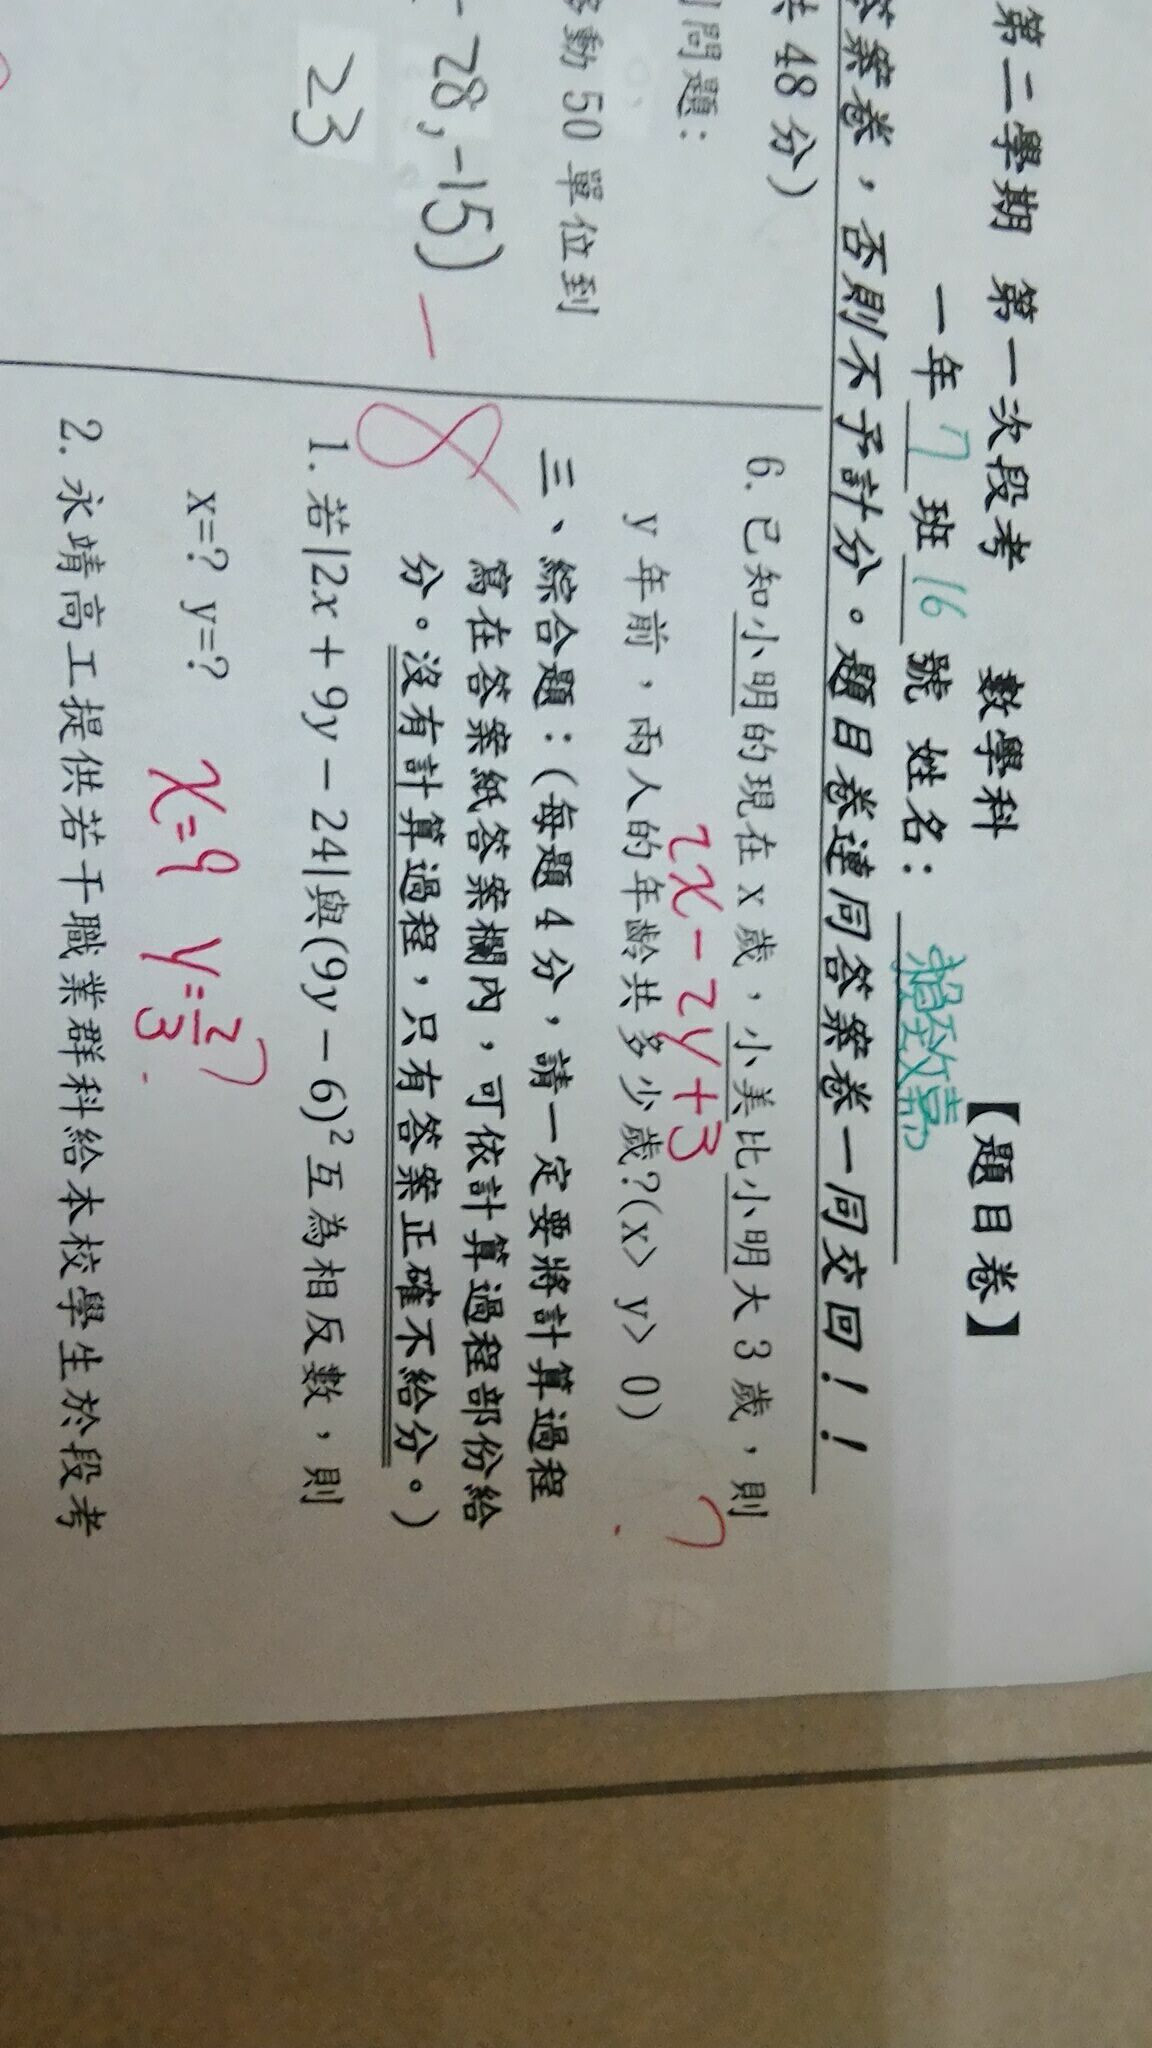 第二學期 第一次段考 數學科 【題目卷】
一年 7 班 16 號 姓名：
答案卷，否則不予計分。題目卷連同答案卷一同交回！！
共 48 分）
問題：
動 50 單位到
-28,-15)
23
8
6. 已知小明的現在 x 歲，小美比小明大 3 歲，則
2x-2y+3
y 年前，兩人的年齡共多少歲?(x> y> 0)
三、綜合題：（每題 4 分，請一定要將計算過程
寫在答案紙答案欄內，可依計算過程部份給
分。沒有計算過程，只有答案正確不給分。）
1. 若|2x + 9y − 24|與(9y − 6)²互為相反數，則
x=? y=?
x=9 y=2/3
2. 永靖高工提供若干職業群科給本校學生於段考